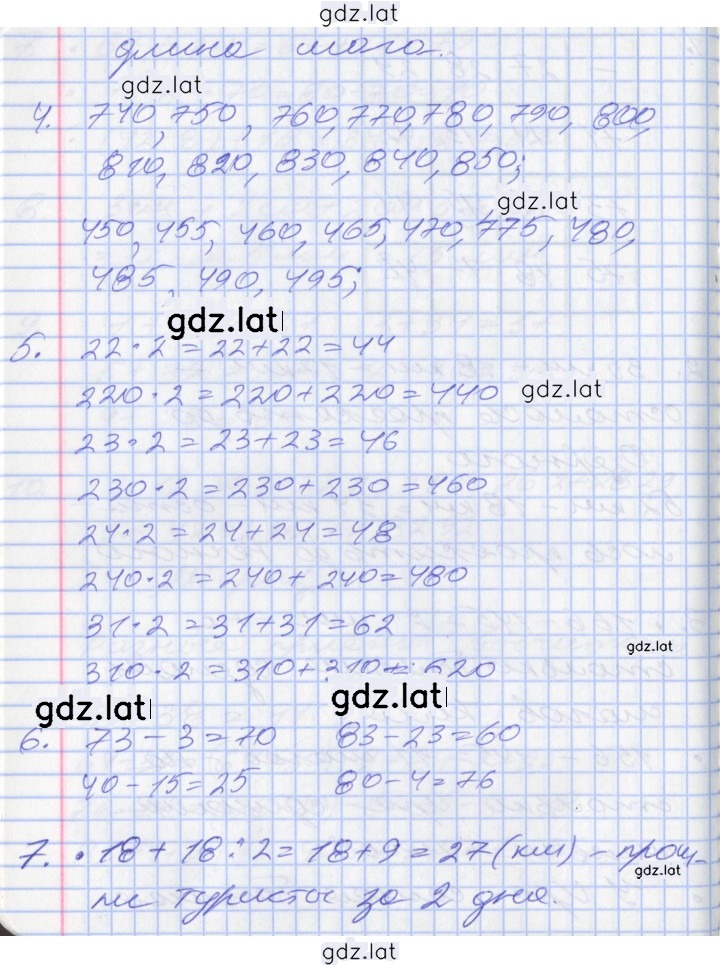 gdz.lat
длина шага.
gdz.lat
4. 740, 750, 760, 770, 780, 790, 800,
810, 820, 830, 840, 850;
gdz.lat
450, 455, 460, 465, 470, 775, 480,
gdz.lat
485, 490, 495;
gdz.lat
5. 22 · 2 = 22 + 22 = 44
220 · 2 = 220 + 220 = 440
gdz.lat
23 · 2 = 23 + 23 = 46
230 · 2 = 230 + 230 = 460
24 · 2 = 24 + 24 = 48
240 · 2 = 240 + 240 = 480
31 · 2 = 31 + 31 = 62
gdz.lat
310 · 2 = 310 + 310 = 620
gdz.lat gdz.lat
6. 73 - 3 = 70 83 - 23 = 60
40 - 15 = 25 80 - 4 = 76
7. · 18 + 18 : 2 = 18 + 9 = 27 (км) - прош-
gdz.lat
ли туристы за 2 дня.
gdz.lat